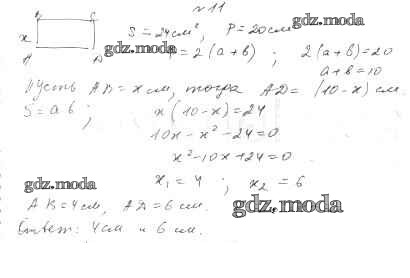 №11
B C
x
A D
S = 24 см², P = 20 см
gdz.moda
gdz.moda
P = 2(a+b) ; 2(a+b) = 20
a+b = 10
Пусть AB = x см, тогда AD = (10-x) см.
S = ab ; x(10-x) = 24
10x - x² - 24 = 0
x² - 10x + 24 = 0
gdz.moda
x₁ = 4 ; x₂ = 6
AB = 4 см, AD = 6 см.
gdz.moda
Ответ: 4 см и 6 см.